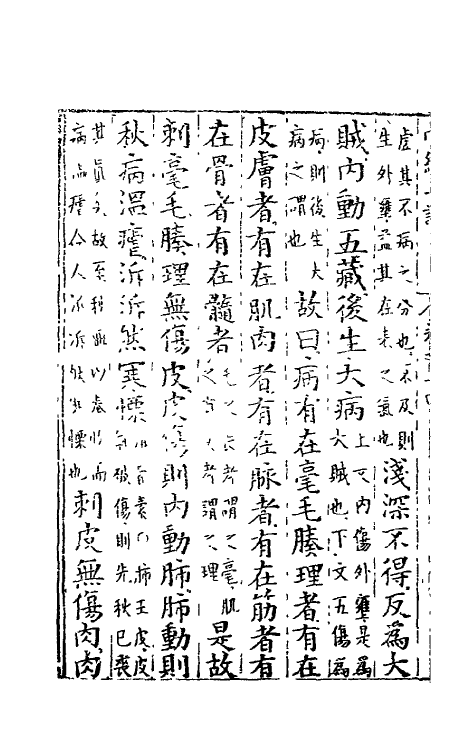 虛其不病之分也不及則
生外壅益其在表之氣也
淺深不得反爲大
賊內動五藏後生大病
上文內傷外壅是爲
大賊也下文五傷爲
病則後生大
病之謂也
故曰病有在毫毛腠理者有在
皮膚者有在肌肉者有在脉者有在筋者有
在骨者有在髓者
毛之長者謂之毫肌
之文者謂之理
是故
刺毫毛腠理無傷皮皮傷則內動肺肺動則
秋病溫瘧泝泝然寒慄
肺王皮皮
氣被傷則先秋已喪
其眞矣故至秋無以養收而
病溫瘧令人泝泝然寒慄也
刺皮無傷肉肉